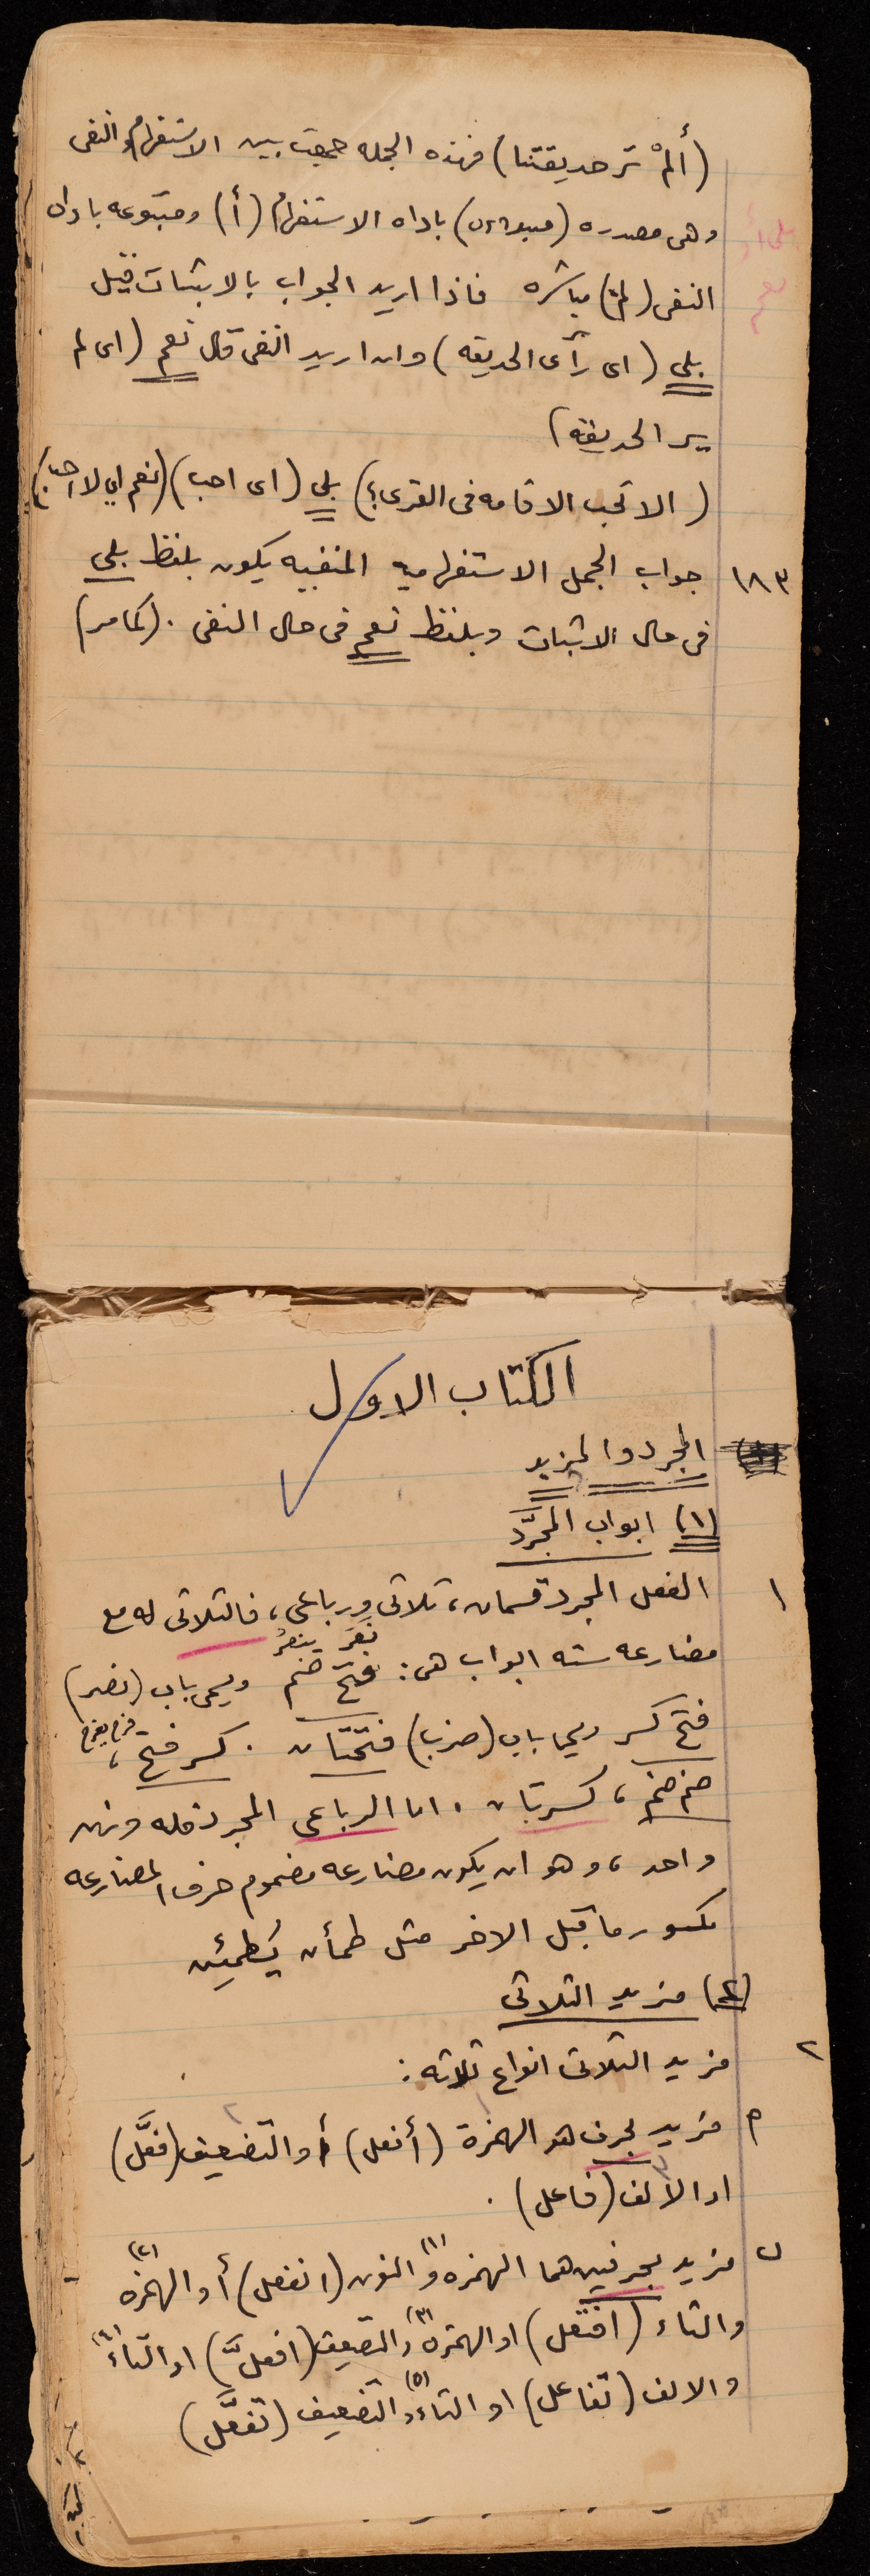 (ألمْ تر حديقتنا) فهذه الجمله جمعت بين الاستفهام والنفى
وهى مصدره (مبدوءه) باداه الاستفهام (أ) ومتبوعه باداه
النفى (لم) مباشره فاذا اريد الجواب بالاثبات قيل
بلى (اى رآى الحديقه) وان اريد النفى قال نعم (اى لم
ير الحديقه)
بلى أو
نعم
(الا تحب الاقامه فى القرى؟) بلى (اى احب) (نعم اي لا احب)
١٨٣ جواب الجمل الاستفهاميه المنفيه يكون بلفظ بلى
فى حال الاثبات وبلفظ نعم فى حال النفى . (كما مر)
الكتاب الاول
المجرد والمزيد
(١) ابواب المجرَّد
١ الفعل المجرد قسمان، ثلاثى ورباعى، فالثلاثى له مع
نصَر ينصُر
مضارعه سته ابواب هى: فتح ضم ويسمى باب (نصر)
فتح كسر ويسمى باب (ضرب) فتحتان . كسر فتح، فرح يفرح
ضم ضم، كسرتان . اما الرباعى المجرد فله وزن
واحد، وهو ان يكون مضارعه مضموم حرف المضارعه
مكسور ما قبل الاخر مثل طمأن يُطمئِن
(٢) مزيد الثلاثى
٢ مزيد الثلاثى انواع ثلاثه :
م مزيد بحرف هو الهمزة (أفعل) أو التضعيف (فعَّل)
او الألف (فاعل) .
ب مزيد بحرفين هما الهمزه و(١) النون (انفعل) أو الهمزه (٢)
والتاء (افتعل) او الهمزه (٣) والتضعيف (افعلَّ) او التاء (٤)
والالف (تفاعل) او التاء (٥) والتضعيف (تفعَّل)